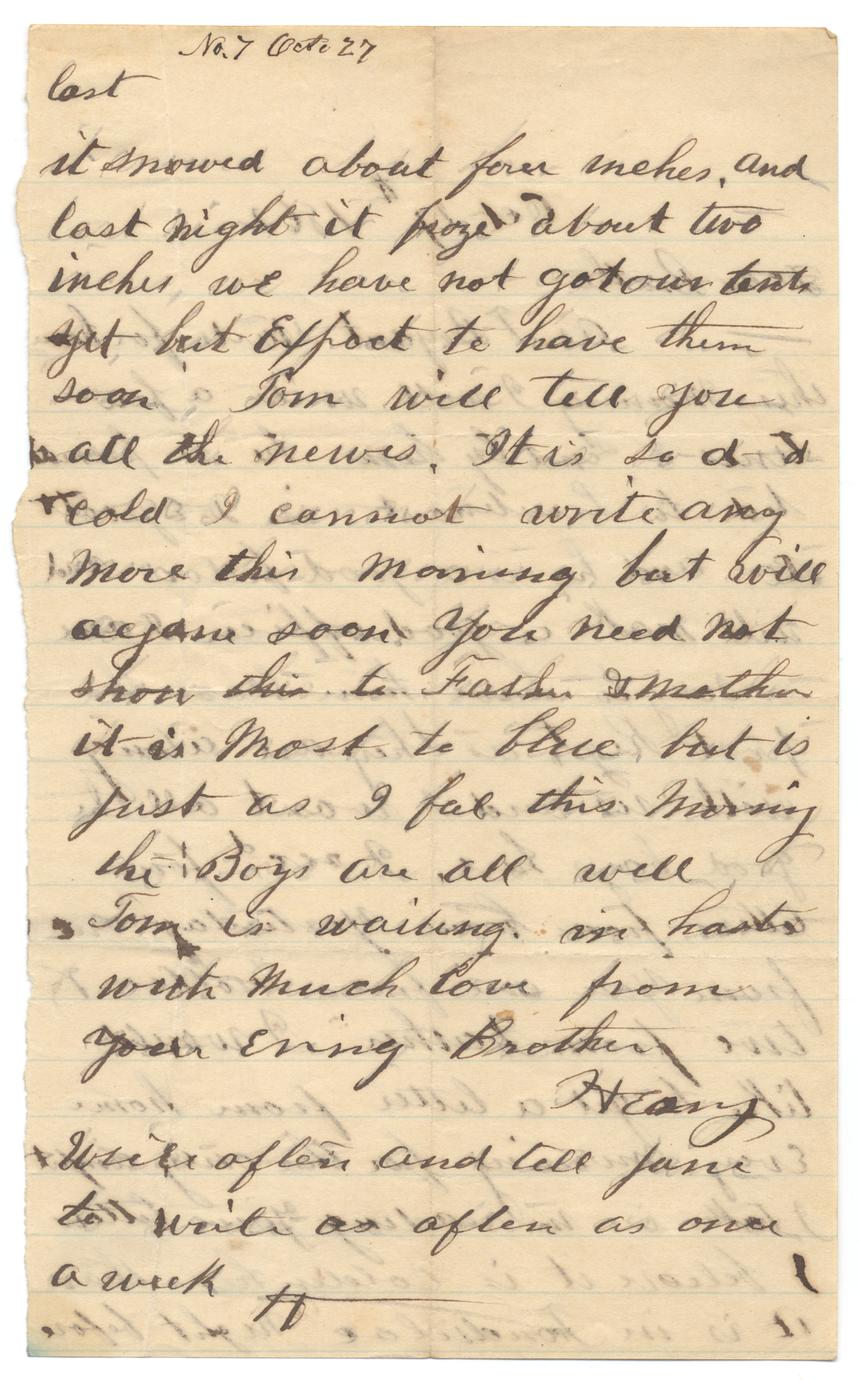 No. 7 Octo 27
last
it snowed about four inches, and
last night it froze about two
inches we have not got our tents
yet but Expect to have them
soon Tom will tell you
all the newes. It is so d-d
cold I cannot write any
more this morning but will
agane soon You need not
show this to Father & Mother
it is Most to blue but is
just as I feel this Morning
the Boys are all well
Tom is waiting. in haste
with Much Love from
your Ering Brother
Henry
Write often and tell Jane
to write as often as once
a week H